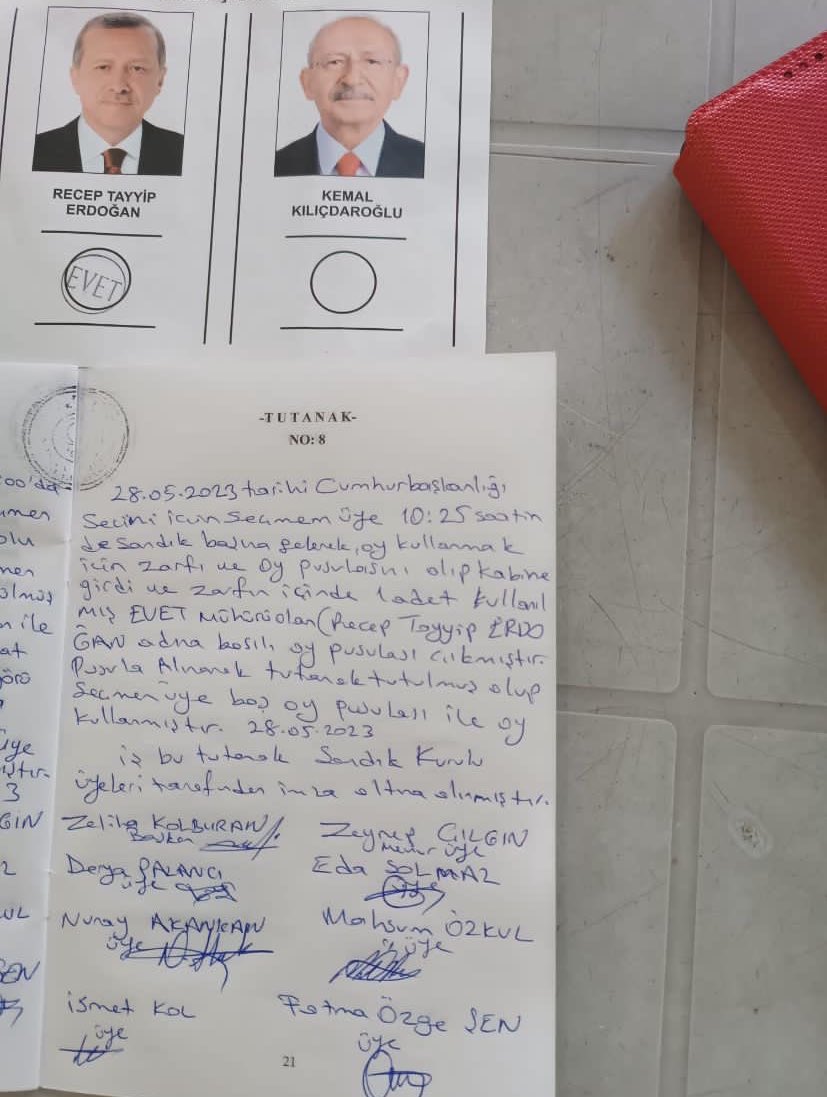 RECEP TAYYİP
ERDOĞAN
KEMAL
KILIÇDAROĞLU
EVET
-TUTANAK-
NO: 8
28.05.2023 tarihi Cumhurbaşkanlığı
Seçimi için Seçmem üye 10:25 saatin
de sandık başına gelerek, oy kullanmak
için zarfı ve oy pusulasını alıp kabine
girdi ve zarfın içinde 1 adet kullanıl
mış EVET mühürü olan (Recep Tayyip ERDO
ĞAN adına basılı oy pusulası çıkmıştır.
Pusula Alınarak tutanak tutulmuş olup
Seçmen üye boş oy pusulası ile oy
kullanmıştır. 28.05.2023
iş bu tutanak Sandık Kurulu
üyeleri tarafından imza altına alınmıştır.
Zeliha KOLBURAN
Başkan
Zeynep ÇILGIN
Memur üye
Derya PALANCI
üye
Eda SOLMAZ
üye
Nuray AKANKAN
üye
Mahsum ÖZKUL
üye
İsmet KOL
üye
Fatma Özge ŞEN
üye
21